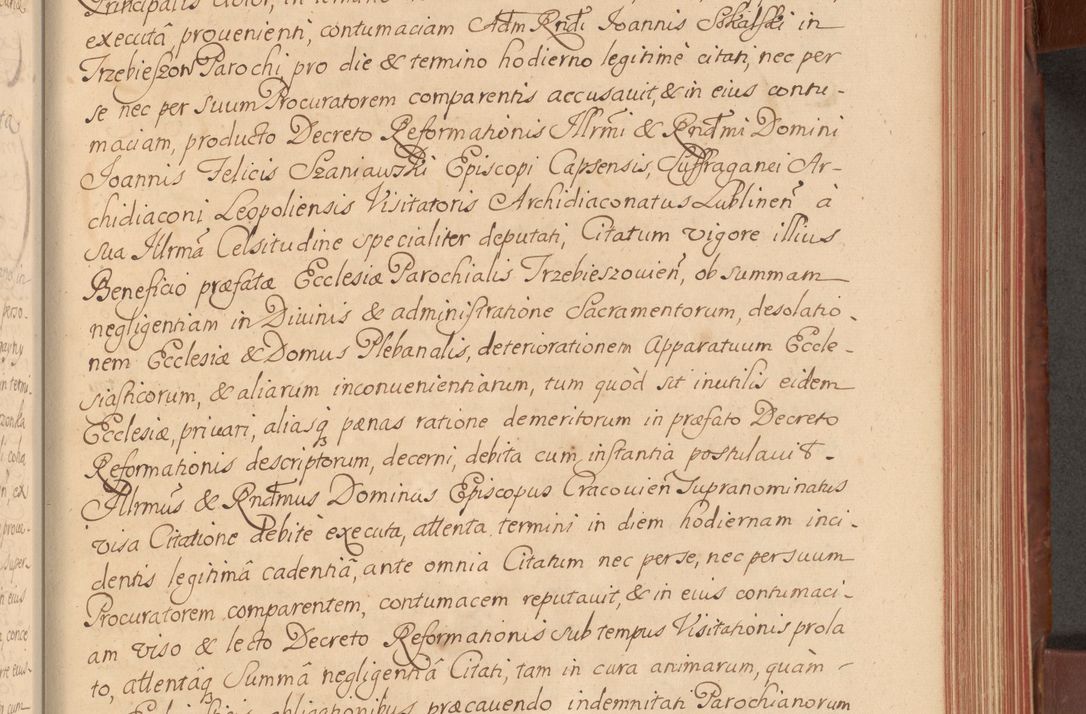 Principalis Actor, in
executâ, prouenienti, contumaciam Adm Rndi Ioannis Sskalski in
Trzebieszow Parochi, pro die & termino hodierno legitimè citati, nec per
se nec per suum Procuratorem comparentis accusauit, & in eius contu-
maciam, producto Decreto Reformationis Illrmi & Rndmi Domini
Ioannis Felicis Szaniawski Episcopi Capsensis, Suffraganei Ar-
chidiaconi Leopoliensis Visitatoris Archidiaconatus Lublinen à
sua Illrmâ Celsitudine specialiter deputati, Citatum vigore illius
Beneficio præfatæ Ecclesiæ Parochialis Trzebieszouien, ob summam
negligentiam in Diuinis & administratione Sacramentorum, desolatio-
nem Ecclesiæ & Domus Plebanalis, deteriorationem Apparatuum Eccle-
siasticorum, & aliarum inconuenientiarum, tum quòd sit inutilis eidem
Ecclesiæ, priuari, aliasq pænas ratione demeritorum in præfato Decreto
Reformationis descriptorum, decerni, debita cum instantia postulauit.
Illrmus & Rndmus Dominus Episcopus Cracouien supranominatus
visa Citatione debitè executa, attenta termini in diem hodiernam inci-
dentis legitimâ cadentiâ, ante omnia Citatum nec per se, nec per suum
Procuratorem comparentem, contumacem reputauit, & in eius contumaci-
am viso & lecto Decreto Reformationis sub tempus Visitationis prola
to, attentâq Summâ negligentiâ Citati, tam in cura animarum, quàm
obligationibus præcauendo indemnitati Parochianorum